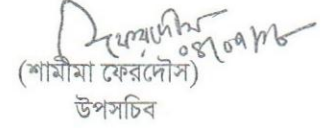 ফেরদৌস
০৪/০৭/১৮
(শামীমা ফেরদৌস)
উপসচিব